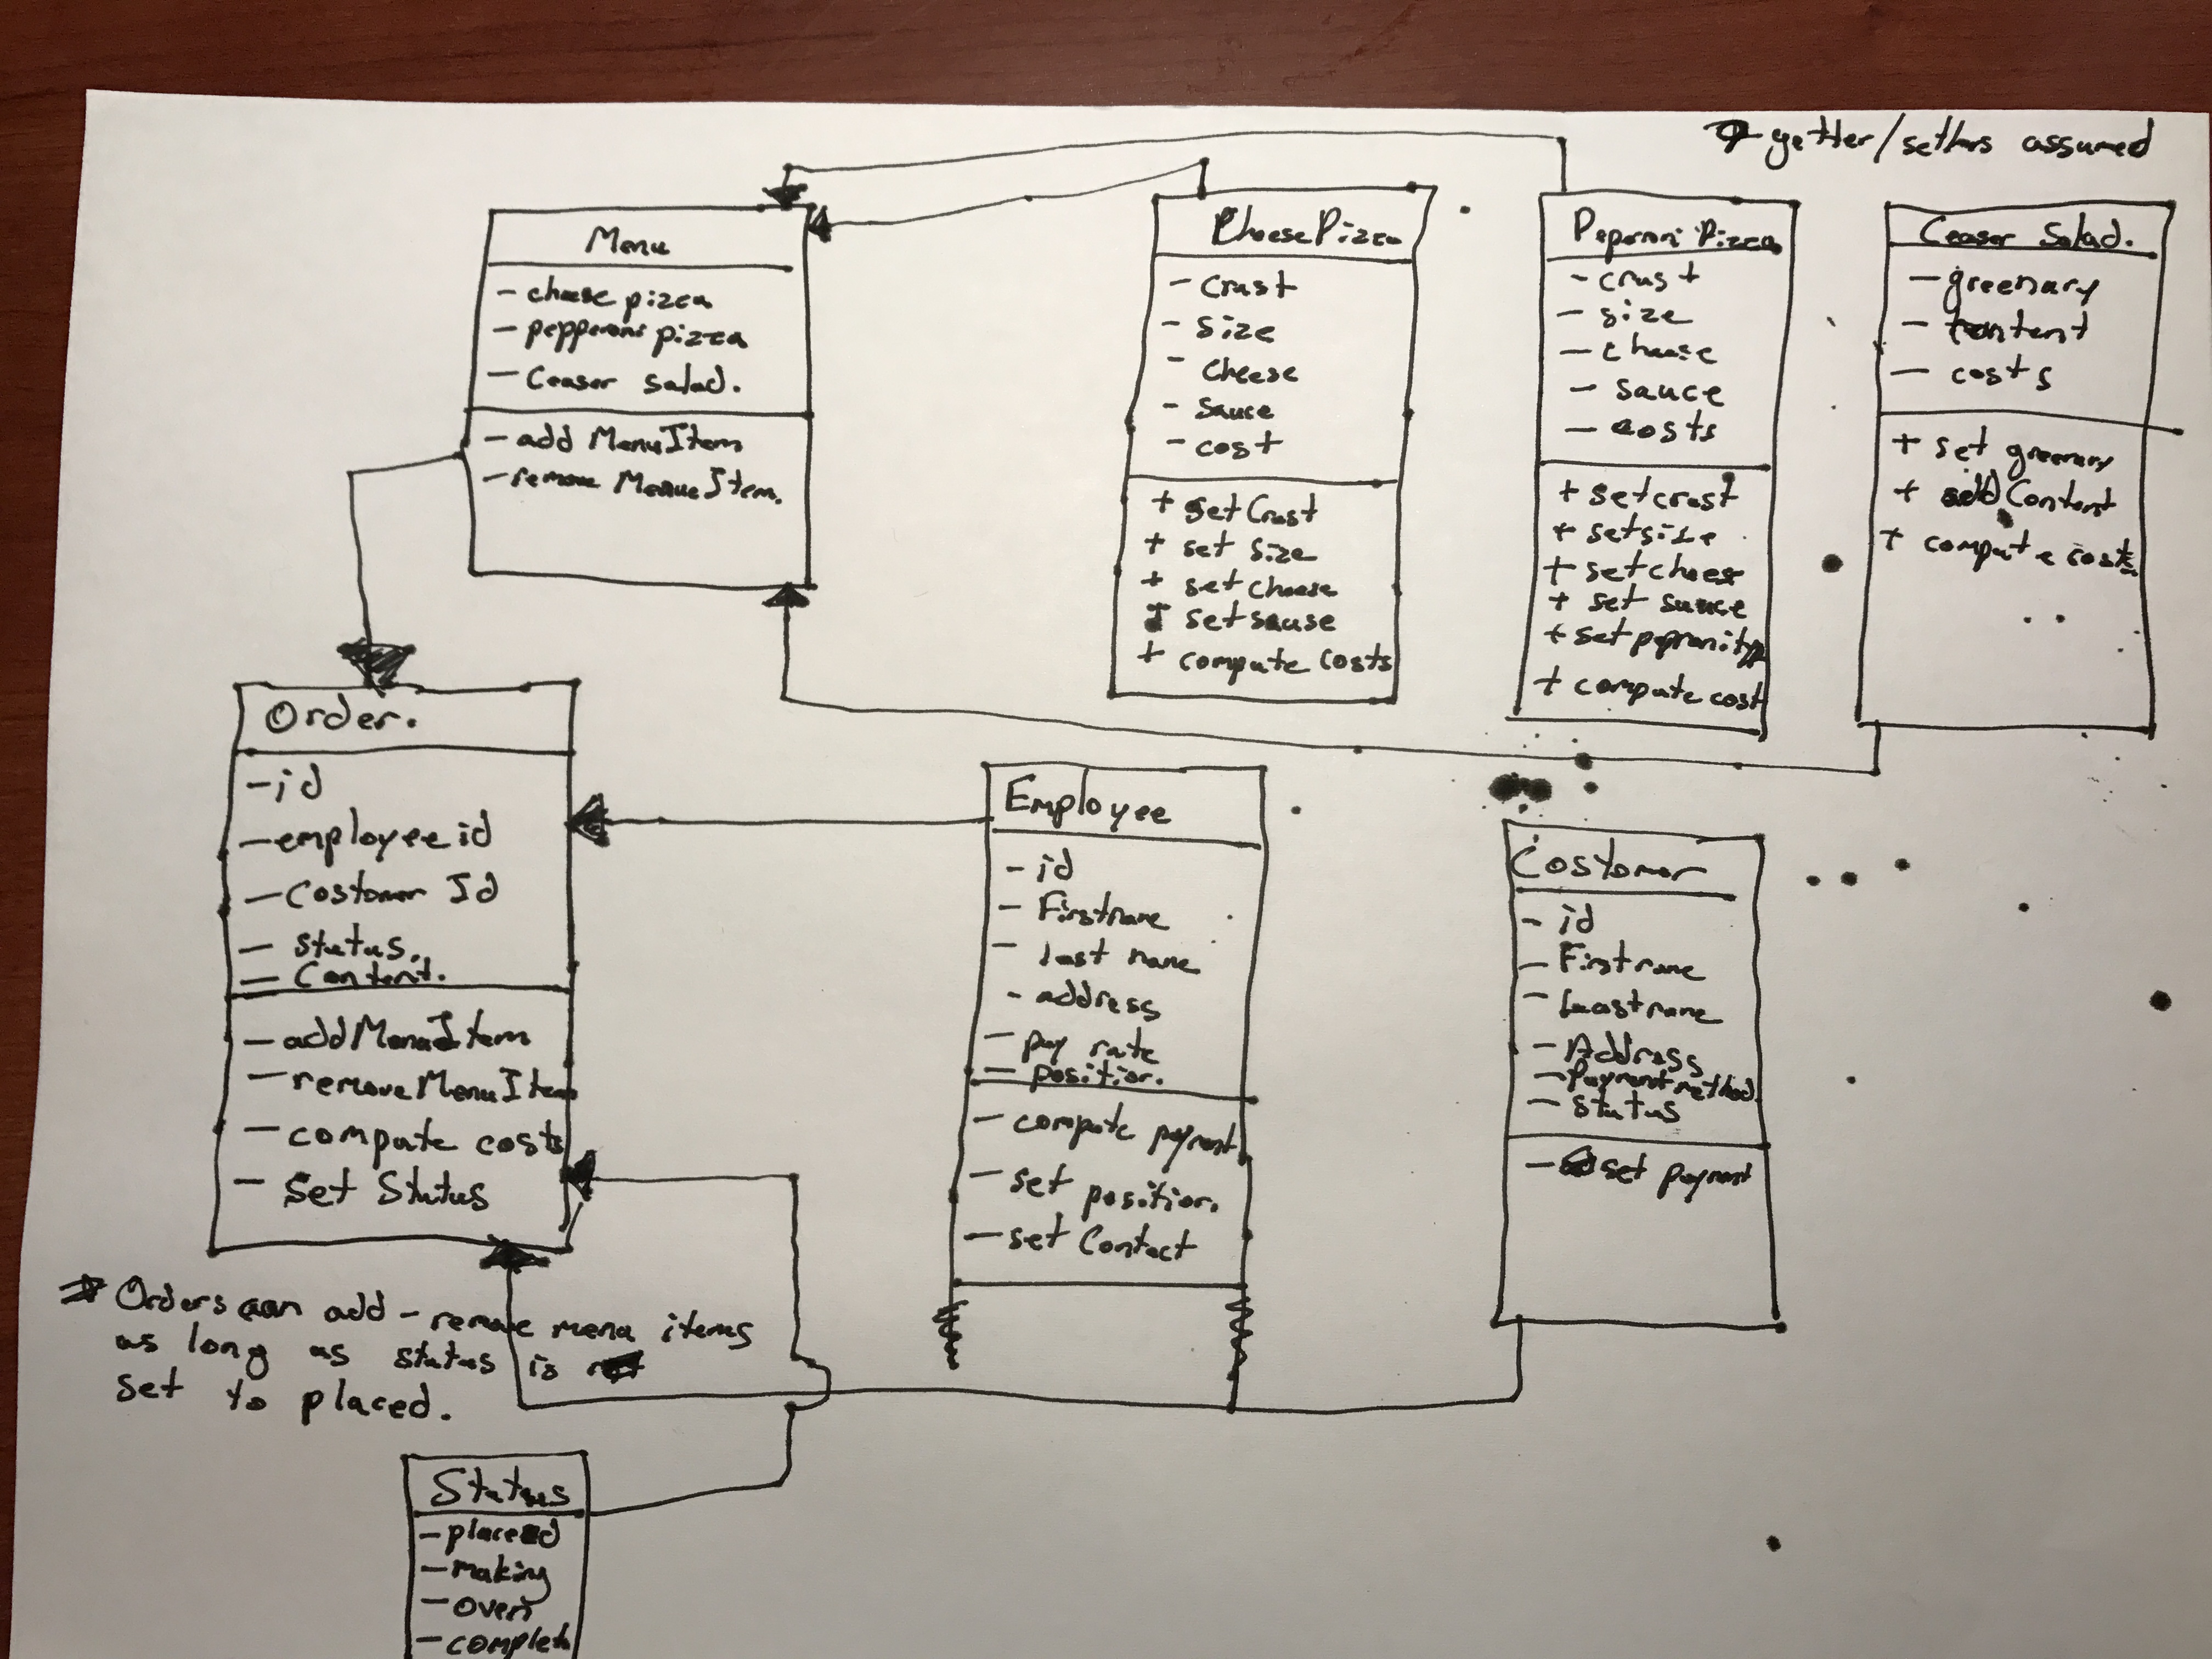 getter/setters assumed
Menu
- cheese pizza
- pepperoni pizza
- Ceaser salad.
- add MenuItem
- remove MenueItem.
CheesePizza
- Crust
- size
- cheese
- Sauce
- cost
+ set Crust
+ set size
+ set cheese
+ set sause
+ compute costs
Peperoni Pizza
- crust
- size
- cheese
- sauce
- costs
+ setcrust
+ setsize
+ setcheese
+ set sauce
+ set peproni typ
+ compute cost
Ceaser Salad.
- greenary
- content
- costs
+ set greenary
+ add Content
+ compute costs
Order.
- id
- employee id
- Costomer Id
- status.
- Content.
- addMenuItem
- removeMenuItem
- compute costs
- Set Status
Employee
- id
- Firstname
- last name
- address
- pay rate
- position.
- compute payment
- set position.
- set Contact
Costomer
- id
- Firstname
- Lastname
- Address
- Payment method
- status
- set payment
Orders can add - remove menu items
as long as status is not
set to placed.
Status
- placed
- making
- oven
- complete